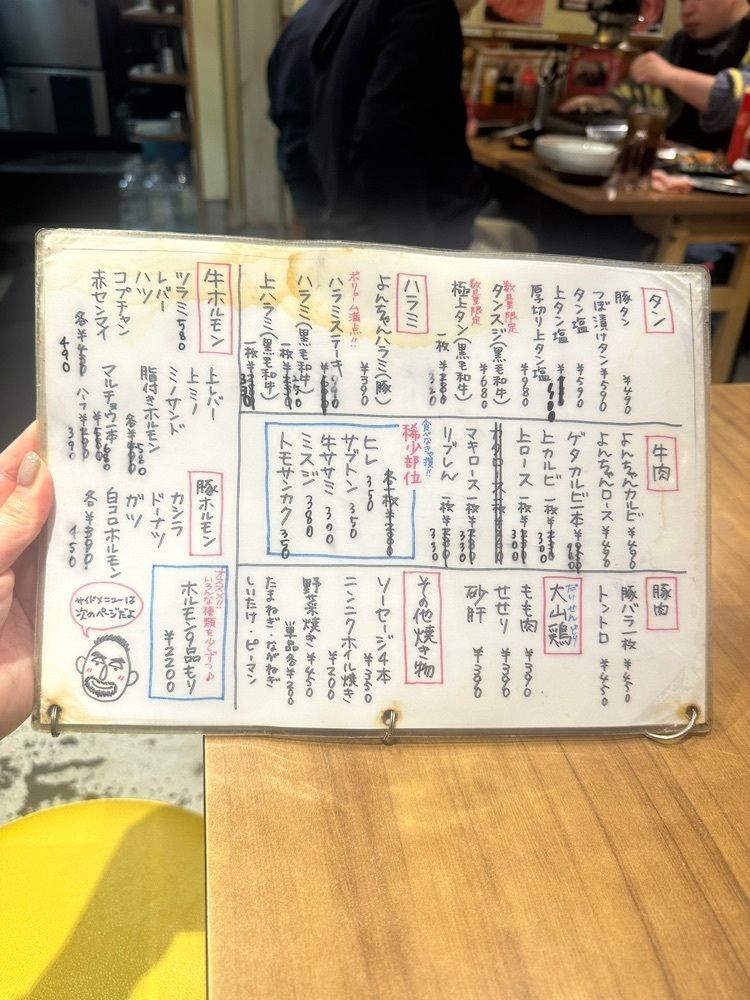 タン
豚タン ¥490
つぼ漬けタン ¥590
タン塩 ¥590
上タン塩
厚切り上タン塩 ¥980
数量限定
タンスジ(黒毛和牛) ¥680
数量限定
極上タン(黒毛和牛)
一枚
ハラミ
よんちゃんハラミ(豚) ¥390
ボリューム満点!!
ハラミステーキ
ハラミ(黒毛和牛)
一枚
上ハラミ(黒毛和牛)
一枚 330
牛肉
よんちゃんカルビ ¥490
よんちゃんロース ¥490
ゲタカルビ一本
上カルビ 一枚 330
上ロース 一枚 300
マキロース 一枚 330
リブしん 一枚 330
食べなきゃ損!!
稀少部位
ヒレ 350
ザブトン 350
牛ササミ 300
ミスジ 380
トモサンカク 350
豚肉
豚バラ一枚 ¥450
トントロ ¥450
だいせんどり
大山鶏
もも肉 ¥390
せせり ¥390
砂肝 ¥390
その他焼き物
ソーセージ4本 ¥350
ニンニクホイル焼き ¥200
野菜焼き ¥450
単品各¥200
たまねぎ・ながねぎ
しいたけ・ピーマン
牛ホルモン
ツラミ 580
レバー
ハツ
コプチャン
赤センマイ
各 490
上レバー
上ミノ
ミノサンド
脂付きホルモン
各 580
マルチョウ一本 680
ハーフ 390
豚ホルモン
カシラ
ドーナツ
ガツ
白コロホルモン
各 450
オススメ!!
いろんな種類を少しずつ♪
ホルモン9品もり
¥2200
サイドメニューは
次のページだよ